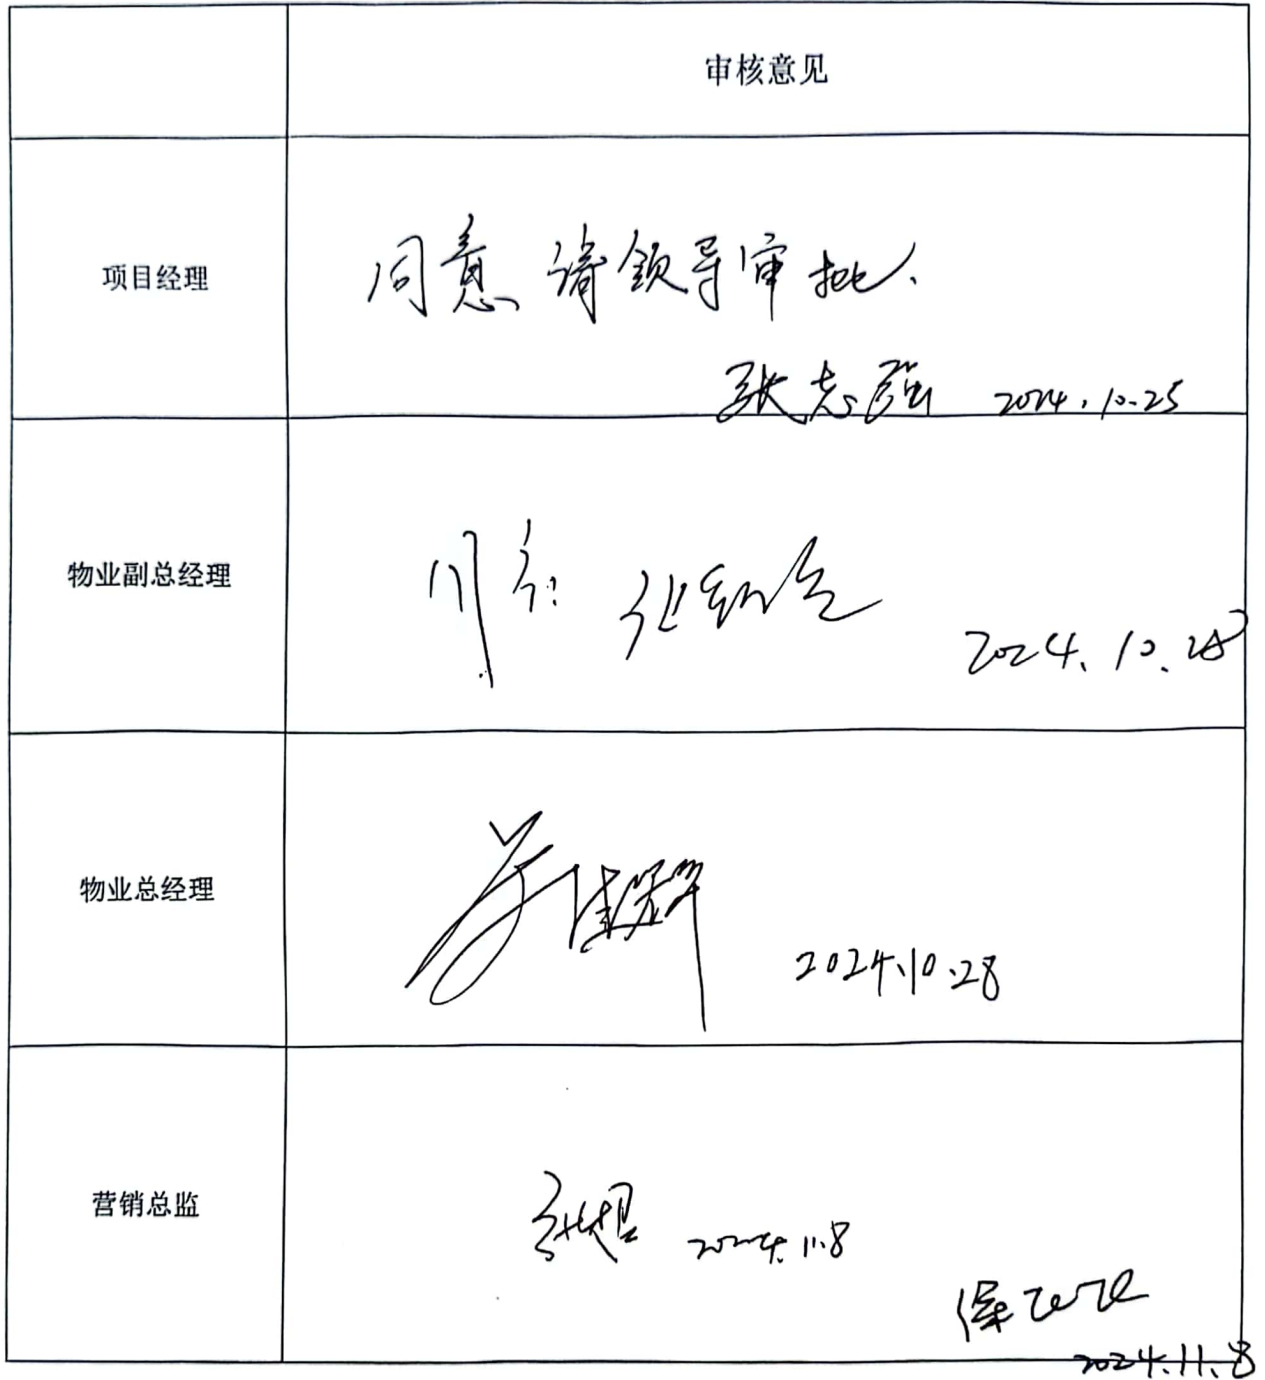 审核意见
项目经理
同意 请领导审批.
张志强 2024.10.25
物业副总经理
同意
2024.10.28
物业总经理
2024.10.28
营销总监
2024.11.8
2024.11.8